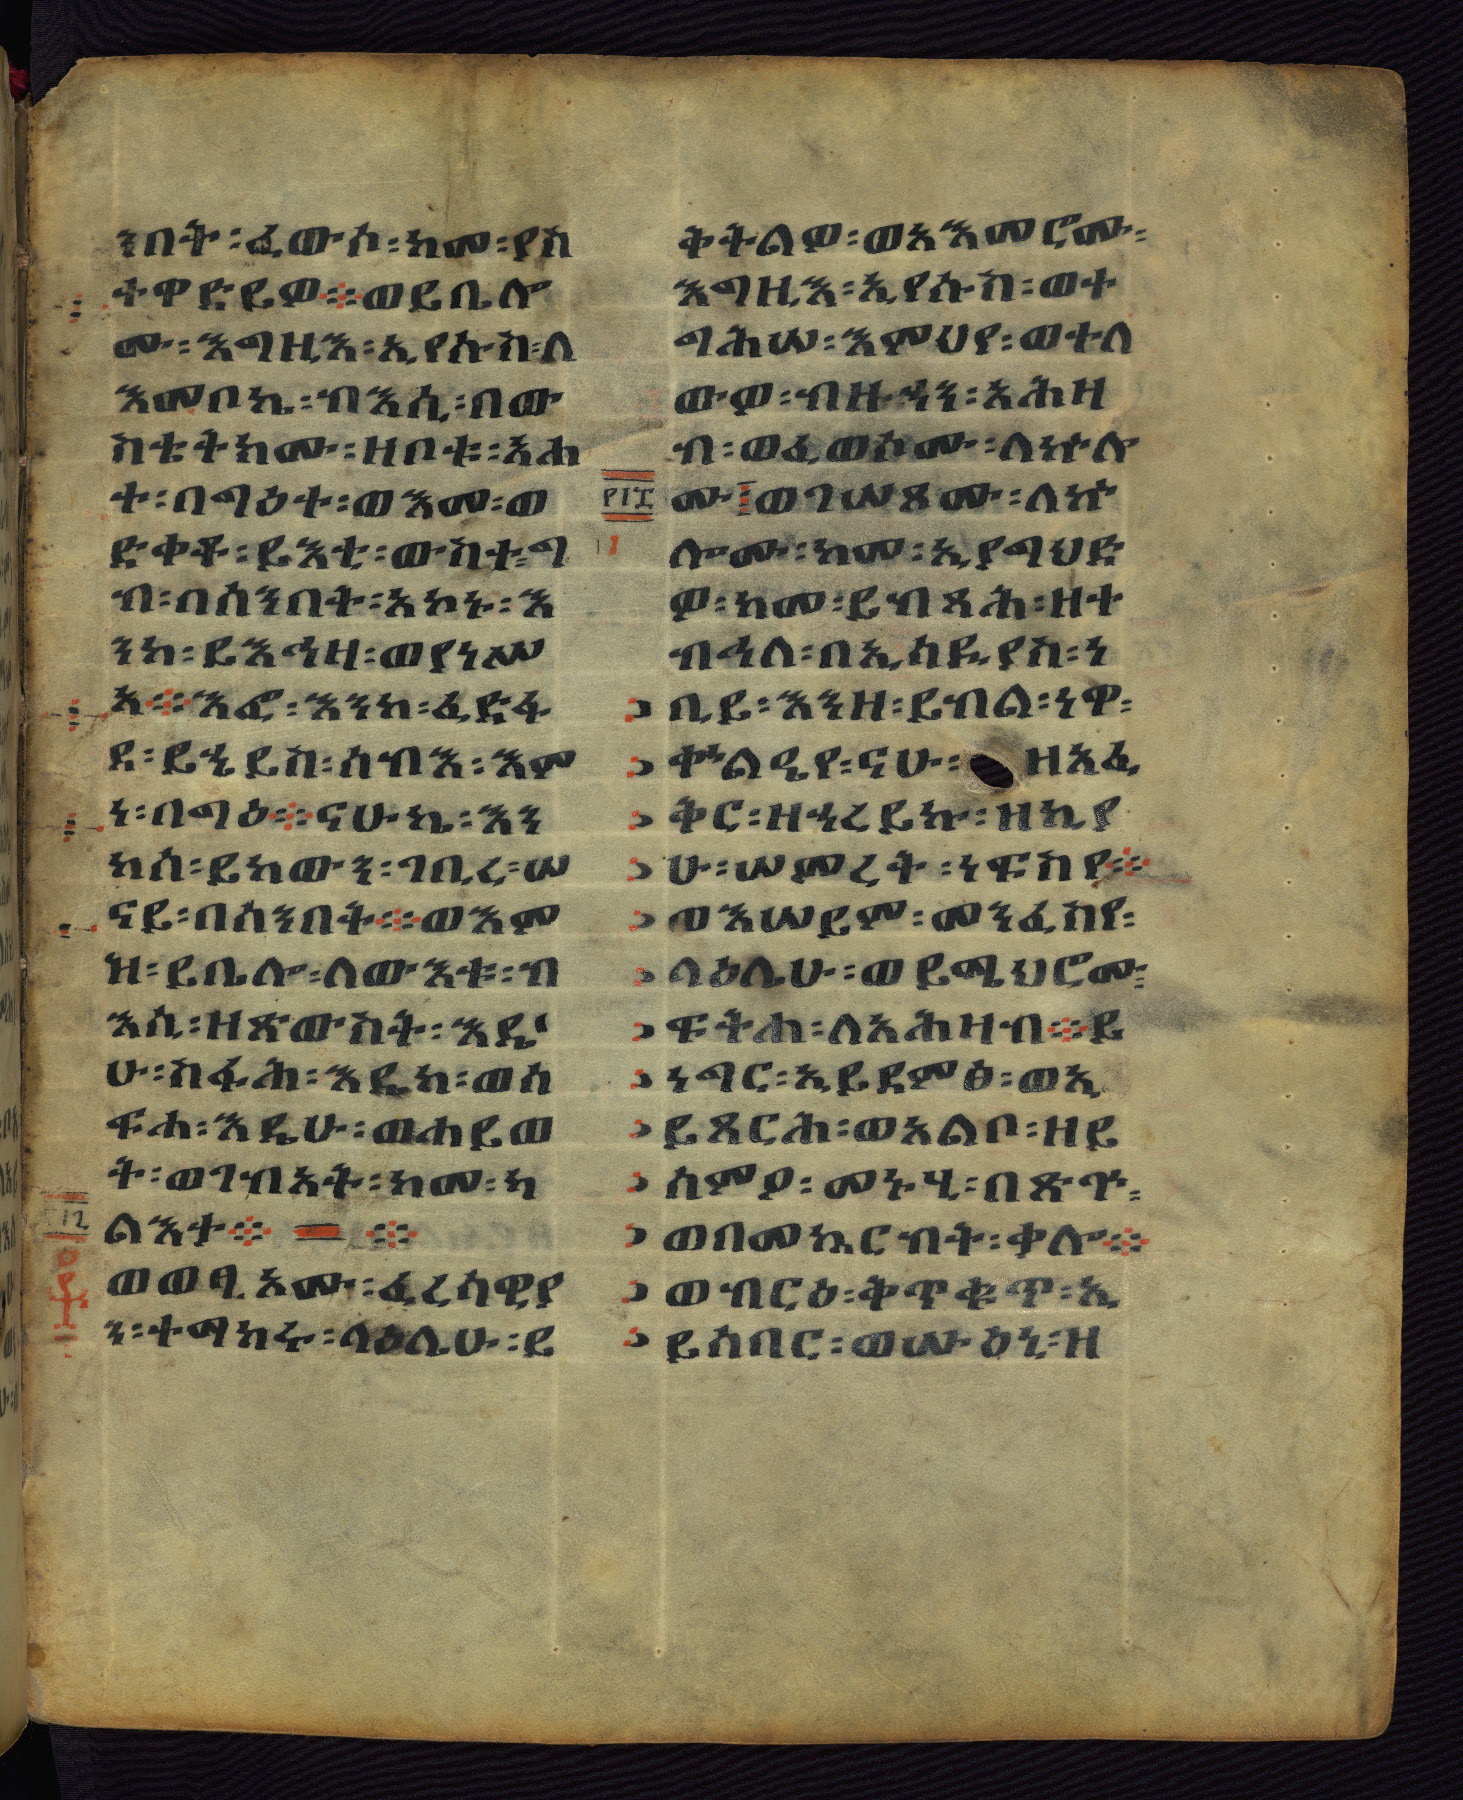 ንበት፡ፈውሶ፡ከመ፡ያስ
ተዋድይዎ፨ወይቤሎ
ሙ፡እግዚእ፡ኢየሱስ፡ለ
እመቦኬ፡ብእሲ፡በው
ስቴትክሙ፡ዘቦቱ፡አሐ
ተ፡በግዕተ፡ወእመ፡ወ
ድቀት፡ይእቲ፡ውስተ፡ግ
ብ፡በሰንበት፡አኮኑ፡እ
ንከ፡ይእኅዛ፡ወያነሥ
አ፨እፎ፡እንከ፡ፈድፋ
ደ፡ይኄይስ፡ሰብእ፡እም
ነ፡በግዕ፨ናሁኬ፡እን
ከሰ፡ይከውን፡ገቢረ፡ሠ
ናይ፡በሰንበት፨ወእም
ዝ፡ይቤሎ፡ለውእቱ፡ብ
እሲ፡ዘጽውስት፡እዴ
ሁ፡ስፋሕ፡እዴከ፡ወሰ
ፍሐ፡እዴሁ፡ወሐይወ
ት፡ወገብአት፡ከመ፡ካ
ልእታ፨ ፨
ወወፂአሙ፡ፈሪሳዊያ
ን፡ተማከሩ፡ላዕሌሁ፡ይ
ቅትልዎ፡ወአእመሮሙ፡
እግዚእ፡ኢየሱስ፡ወተ
ግሕሠ፡እምህየ፡ወተለ
ውዎ፡ብዙኃን፡አሕዛ
ብ፡ወፈወሶሙ፡ለኵሎ
ሙ፡ወገሠጾሙ፡ለኵ
ሎሙ፡ከመ፡ኢያግህድ
ዎ፡ከመ፡ይብጻሕ፡ዘተ
ብኅለ፡በኢሳይያስ፡ነ
ቢይ፡እንዘ፡ይብል፡ነዋ፡
ቍልዔየ፡ናሁ፡ዘአፈ
ቅር፡ዘኀረይኩ፡ዘኪያ
ሁ፡ሠምረት፡ነፍስየ፨
ወእሠይም፡መንፈስየ፡
ላዕሌሁ፡ወይሜህሮሙ፡
ፍትሐ፡ለአሕዛብ፨ይ
ነግር፡ኢይደምፅ፡ወኢ
ይጸርሕ፡ወአልቦ፡ዘይ
ሰምዖ፡መኑሂ፡በጽጐ፡
ወበመኳርብት፡ቃሎ፨
ወብርዕ፡ቅጥቁጥ፡ኢ
ይሰበር፡ወሡዕኒ፡ዘ